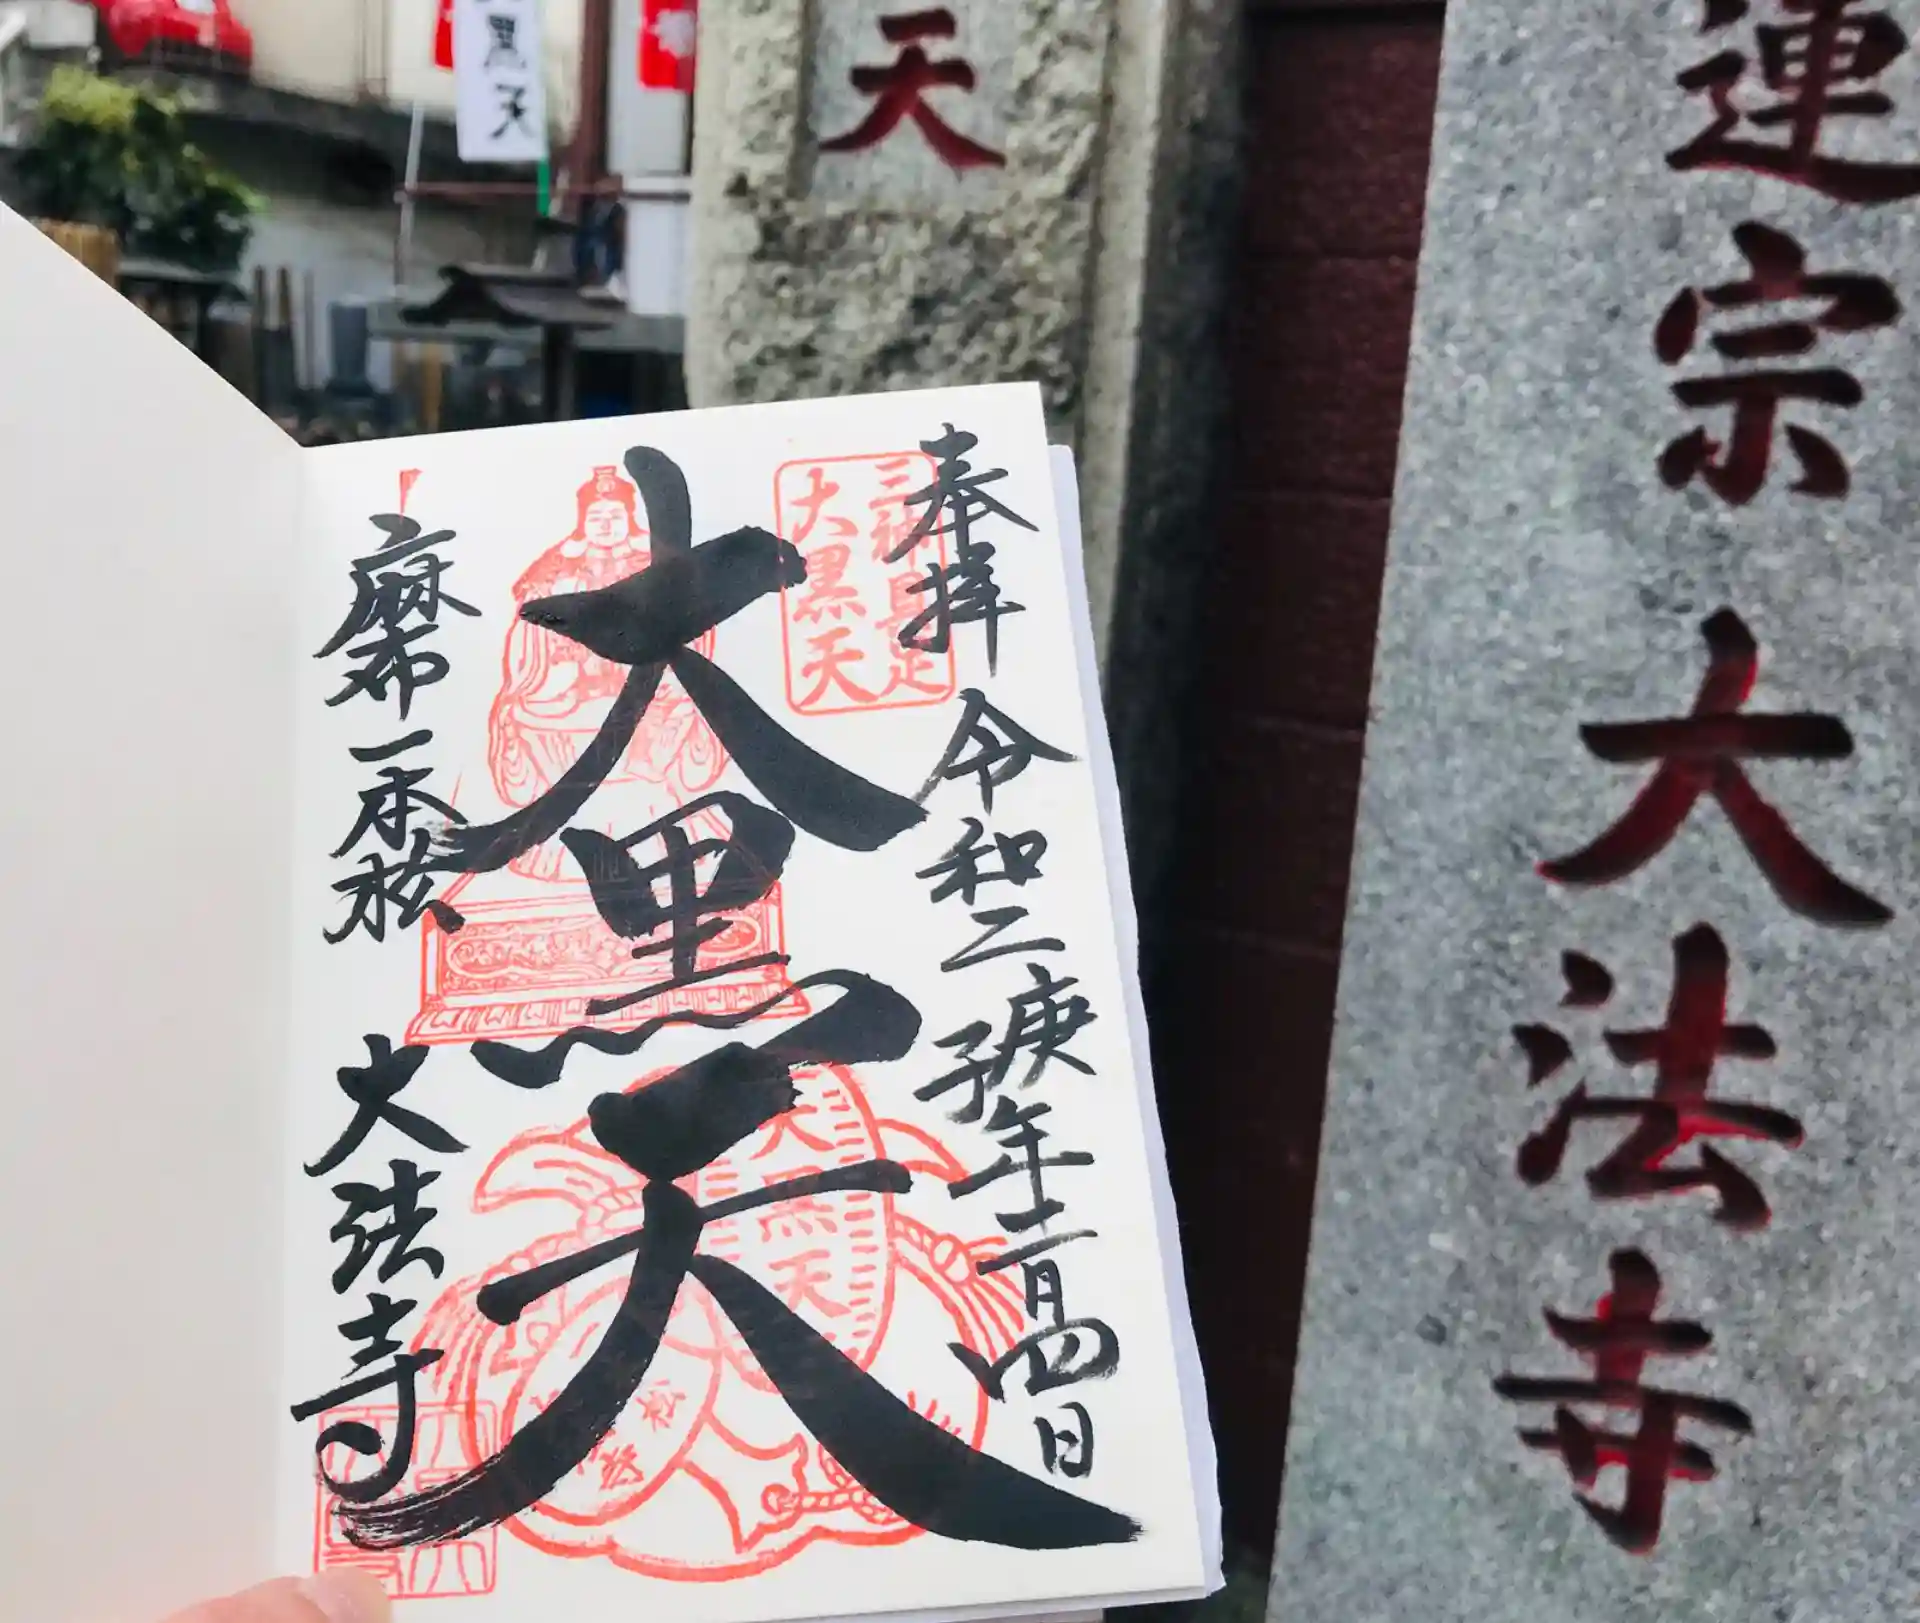 黒天
天
蓮宗大法寺
奉拝 令和二庚子年十二月四日
三神具足
大黒天
大黒天
大黒天
麻布一本松 大法寺